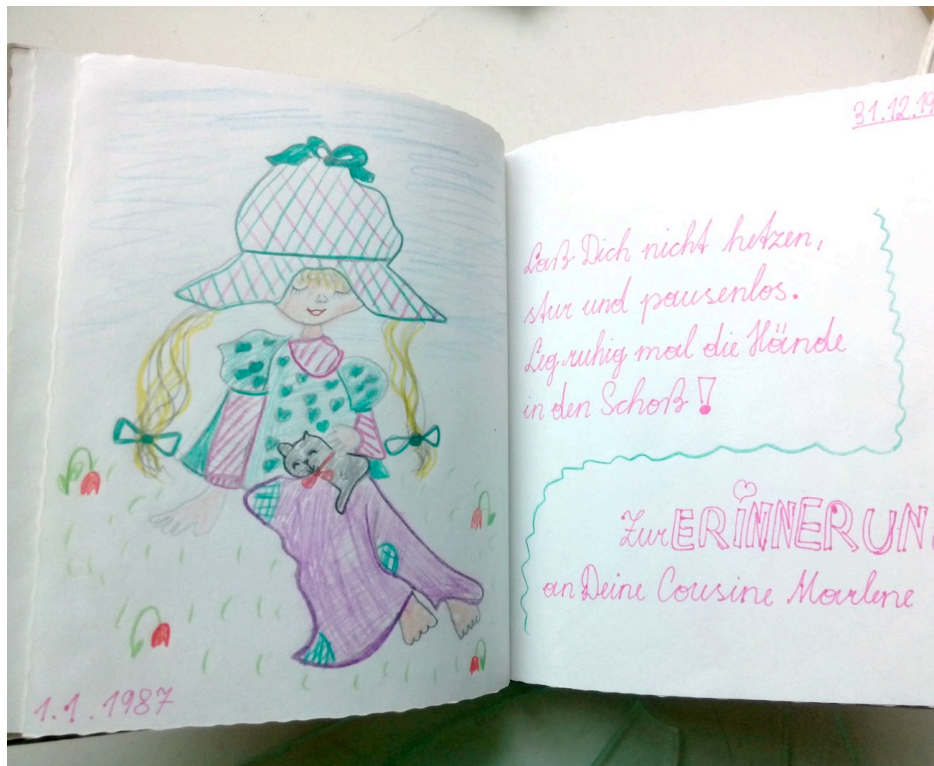 1.1.1987
31.12.19
Laß Dich nicht hetzen,
stur und pausenlos.
Leg ruhig mal die Hände
in den Schoß!
Zur ERiNNERUN
an Deine Cousine Marlene